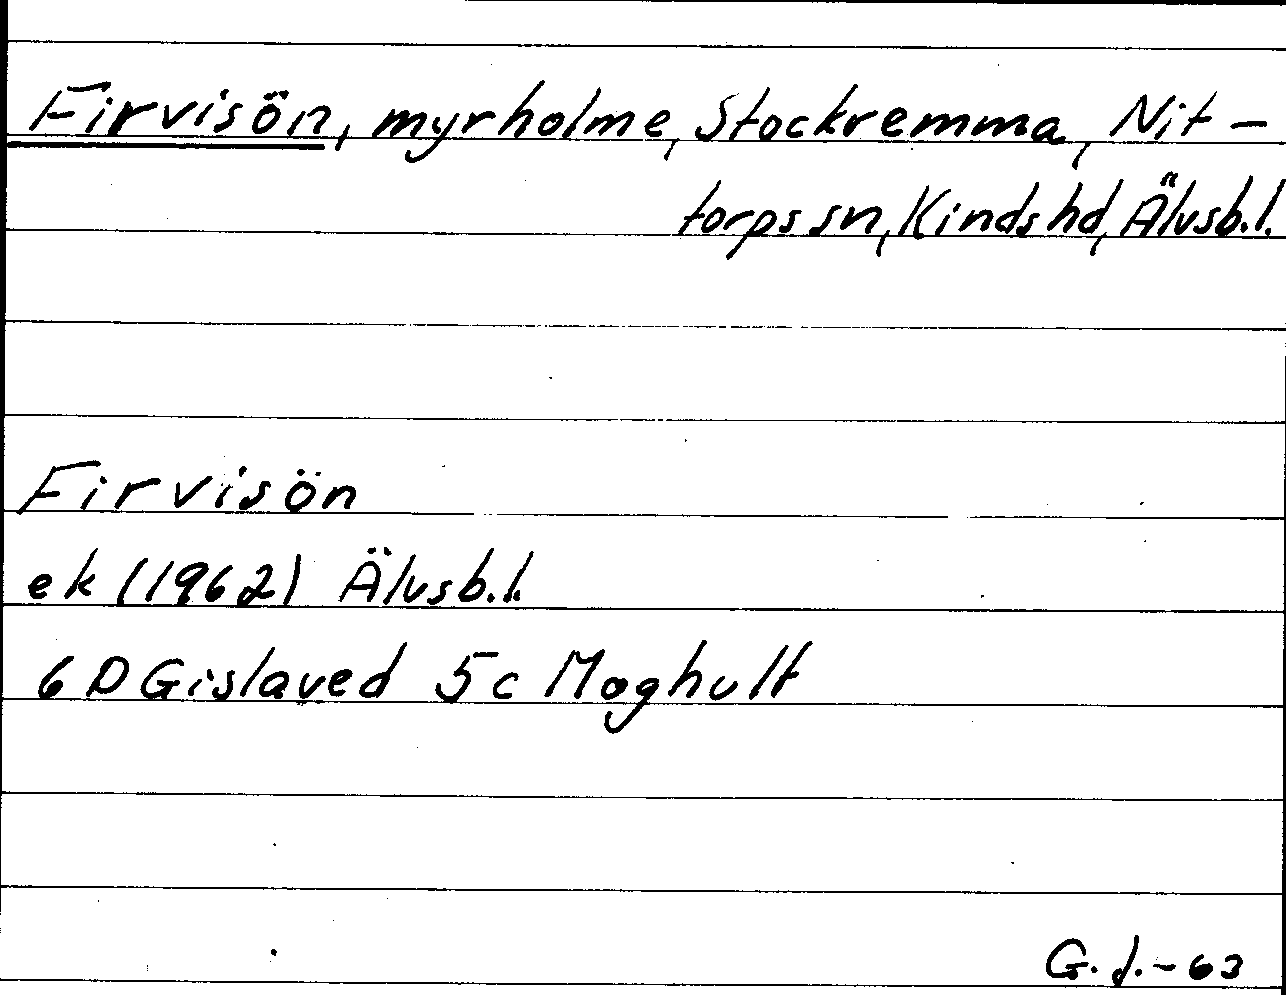 Firvisön, myrholme, Stockremma, Nit-
torps sn, Kinds hd, Älvsb.l.
Firvisön
ek (1962) Älvsb.l.
6D Gislaved 5c Moghult
G.J.-63